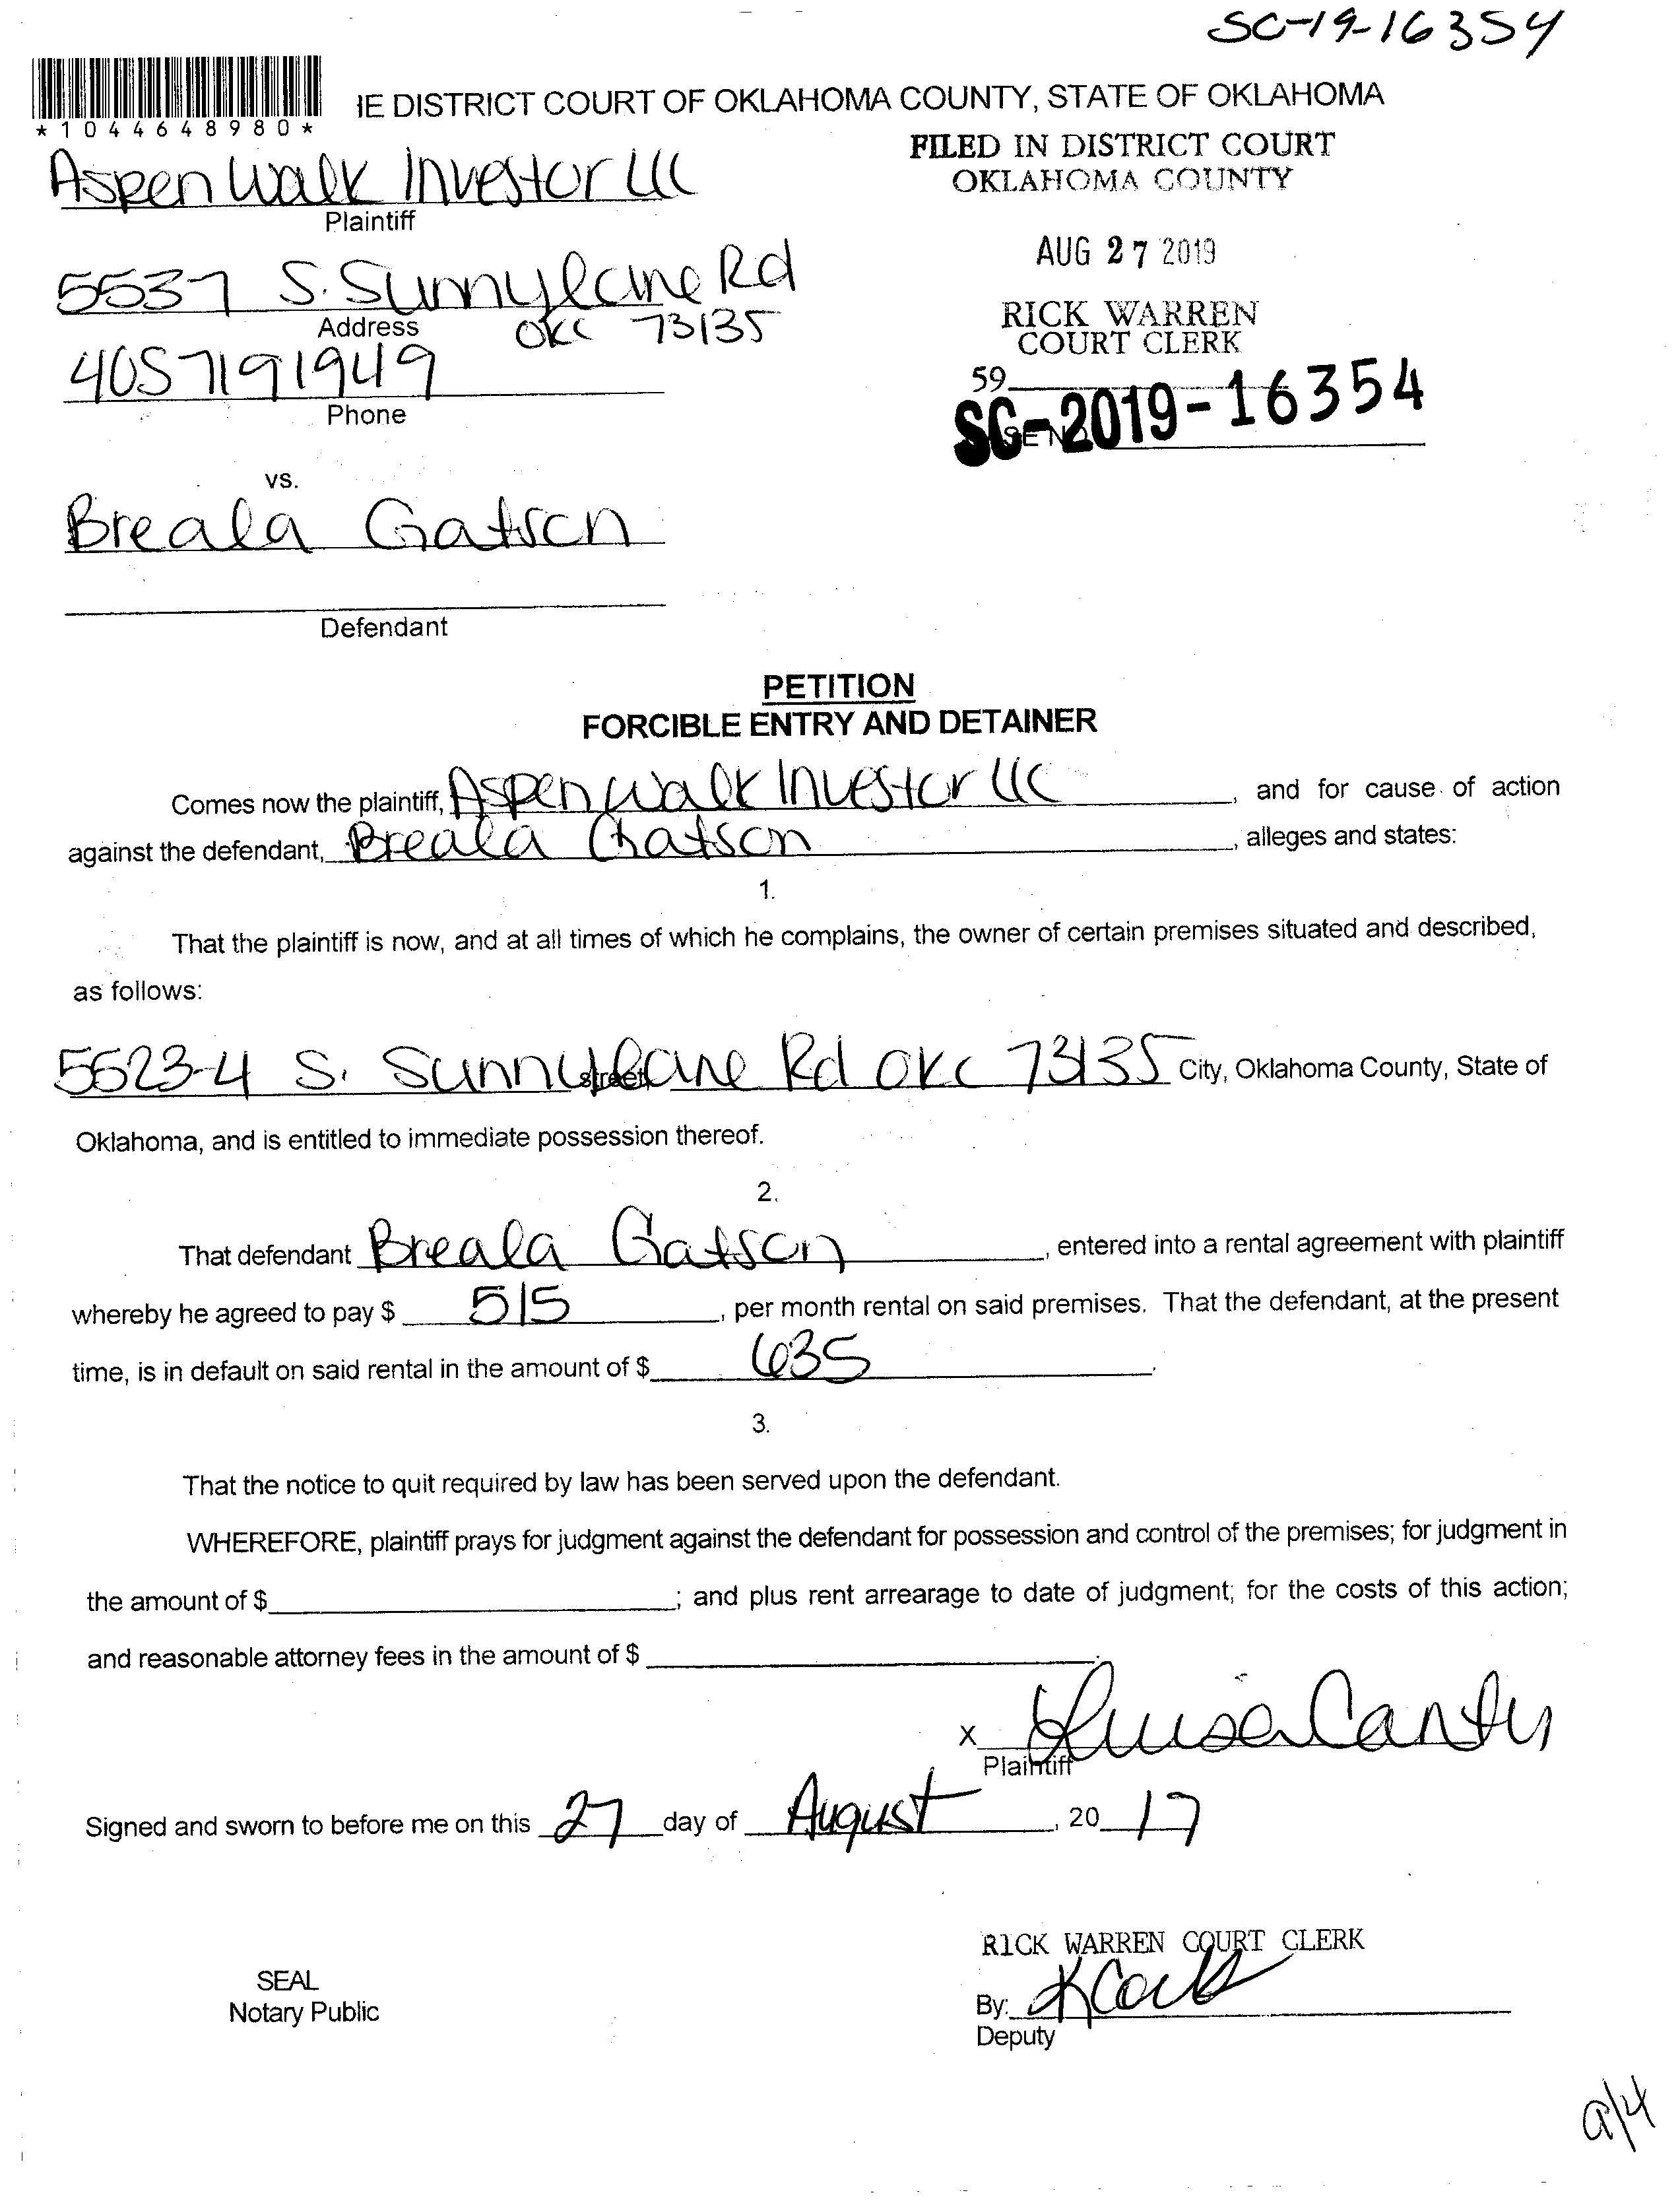 SC-19-16354
*1044648980*
IE DISTRICT COURT OF OKLAHOMA COUNTY, STATE OF OKLAHOMA
FILED IN DISTRICT COURT
OKLAHOMA COUNTY
Aspen Walk Investor LLC
Plaintiff
AUG 27 2019
5537 S. Sunnylane Rd
Address OKC 73135
RICK WARREN
COURT CLERK
4057191949
Phone
59
SC-2019-16354
vs.
Breala Gatson
Defendant
PETITION
FORCIBLE ENTRY AND DETAINER
Comes now the plaintiff, Aspen Walk Investor LLC, and for cause of action
against the defendant, Breala Gatson, alleges and states:
1.
That the plaintiff is now, and at all times of which he complains, the owner of certain premises situated and described,
as follows:
5623-4 S. Sunnylane Rd OKC 73135 City, Oklahoma County, State of
street
Oklahoma, and is entitled to immediate possession thereof.
2.
That defendant Breala Gatson, entered into a rental agreement with plaintiff
whereby he agreed to pay $ 515, per month rental on said premises. That the defendant, at the present
time, is in default on said rental in the amount of $ 635.
3.
That the notice to quit required by law has been served upon the defendant.
WHEREFORE, plaintiff prays for judgment against the defendant for possession and control of the premises; for judgment in
the amount of $ ; and plus rent arrearage to date of judgment; for the costs of this action;
and reasonable attorney fees in the amount of $ .
X
Plaintiff
Signed and sworn to before me on this 27 day of August, 20 19
RICK WARREN COURT CLERK
SEAL
Notary Public
By:
Deputy
9/4